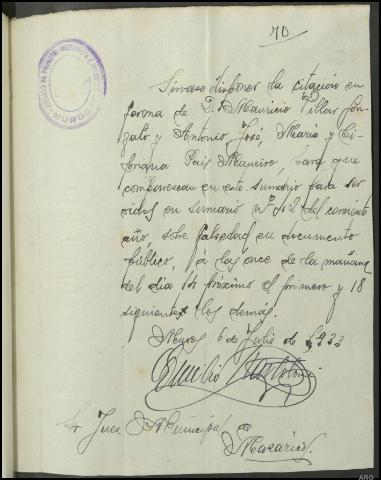 70
JUZGADO DE PRIMERA INSTANCIA E INSTRUCCION
MUROS
Sirvase disponer la citación en
forma de D. Mauricio Pillar Gon-
zalo y Antonio, José, Maria y Ci-
priana Pais Maneiro, para que
comparezcan en este sumario para ser
oidos en sumario nº 12 del corriente
año, sobre falsedad en documento
público, á las once de la mañana
del dia 14 próximo el primero y 18
siguiente los demás.
Muros 6 de Julio de 1933
Sr Juez Municipal
de Mazaricos.
ARG